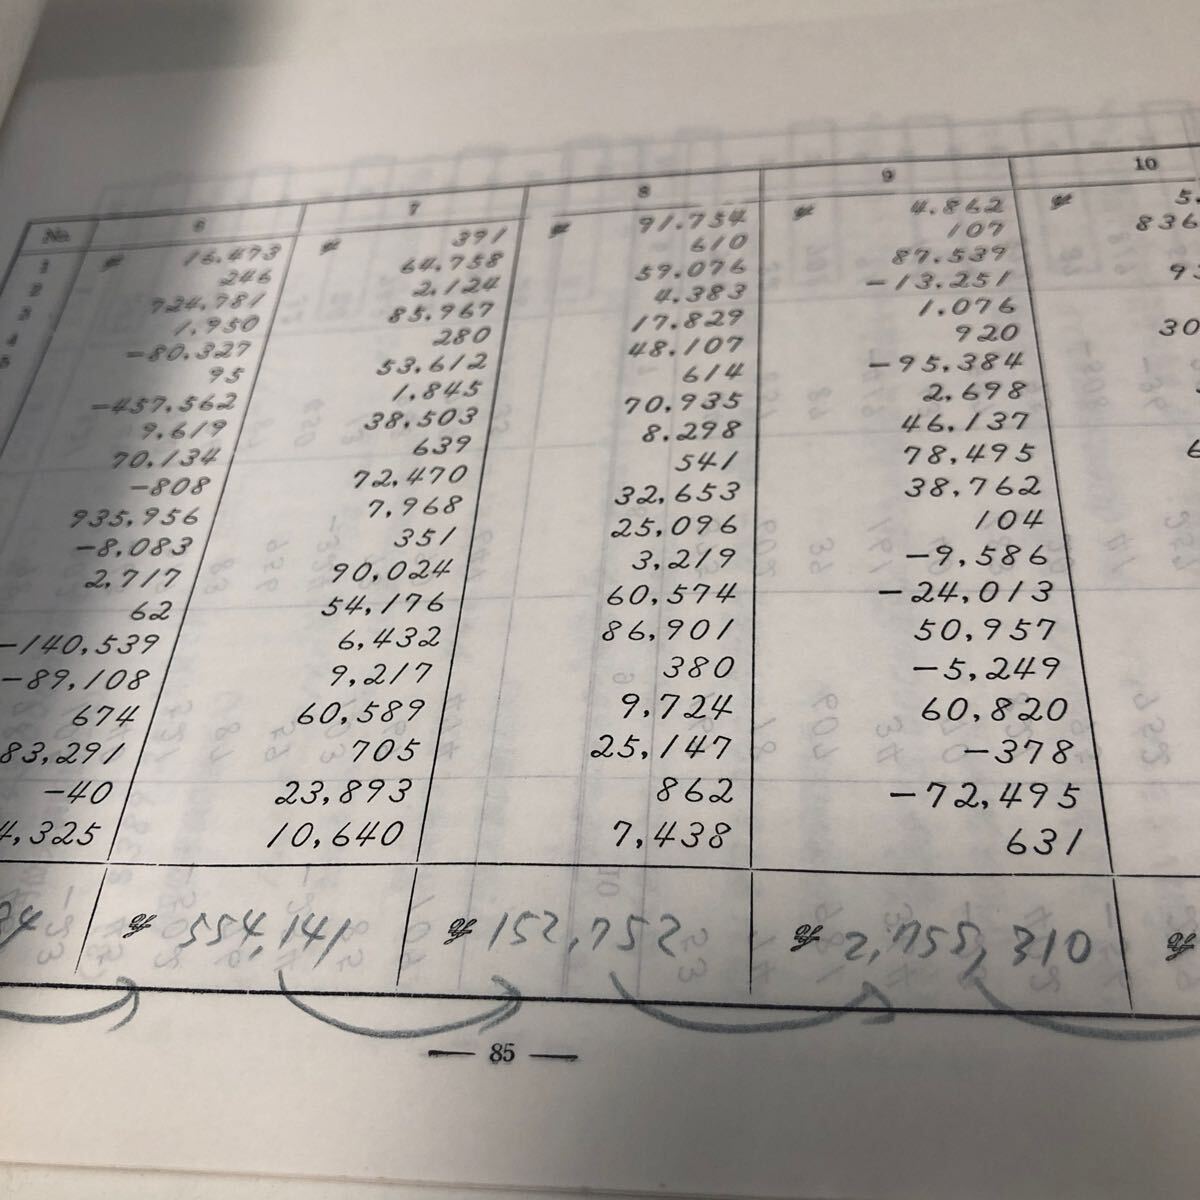 No. 6 7 8 9 10
1 ¥ 16,473 ¥ 391 ¥ 91,754 ¥ 4,862 ¥
2 246 64,758 610 107 836
3 724,781 2,124 59,076 87,539
4 1,950 85,967 4,383 -13,251
5 -80,327 280 17,829 1,076
95 53,612 48,107 920
-457,562 1,845 614 -95,384
9,619 38,503 70,935 2,698
70,134 639 8,298 46,137
-808 72,470 541 78,495
935,956 7,968 32,653 38,762
-8,083 351 25,096 104
2,717 90,024 3,219 -9,586
62 54,176 60,574 -24,013
-140,539 6,432 86,901 50,957
-89,108 9,217 380 -5,249
674 60,589 9,724 60,820
83,291 705 25,147 -378
-40 23,893 862 -72,495
4,325 10,640 7,438 631
¥ 554,141 ¥ 152,752 ¥ 2,755,310 ¥
— 85 —